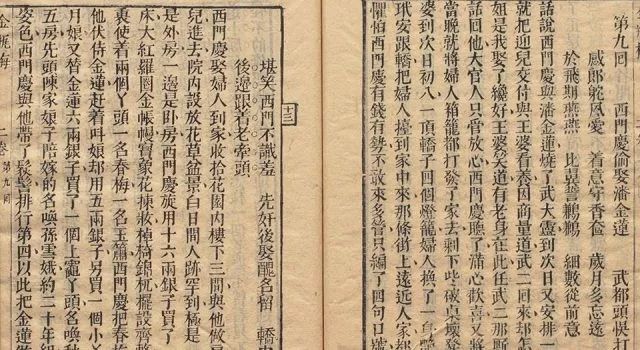 第九回 西門慶偷娶潘金蓮 武都頭悞打
感郎 夙愛 着意守香奩 歲月多忘遠
於飛期燕燕 比翼誓鶼鶼 細數從前意
話說西門慶與潘金蓮燒了武大靈到次日又安排一
就把迎兒交付與王婆看養因商量道武二回來却怎
如是我娶了纔好王婆笑道有老身在此任武二那
話回他大官人只管放心西門慶聽了滿心歡喜又將
當晚就將婦人箱籠都打發了家去剩下些破桌壞凳
婆到次日初八一頂轎子四個燈籠婦人換了一身
玳安跟轎把婦人擡到家中來那條街上遠近人家
懼怕西門慶有錢有勢不敢來多管只編了四句口號
十三
堪笑西門不識羞 先奸後娶醜名畱 轎內
後邊跟着老牽頭
西門慶娶婦人到家收拾花園內樓下三間與他做
兒進去院內設放花草盆景白日間人跡罕到極是
是外房一邊是臥房西門慶旋用十六兩銀子買了
床大紅羅圈金帳幔寶象花揀妝桌椅錦杌擺設齊整
裏使着兩個丫頭一名春梅一名玉簫西門慶把春梅
他伏侍金蓮赶着叫娘却用五兩銀子另買一個小
月娘又替金蓮六兩銀子買了一個上竈丫頭名喚秋
五房先頭陳家娘子陪嫁的名喚孫雪娥約二十年紀
姿色西門慶與他帶了䯼髻排行第四以此把金蓮做
金瓶梅 二卷 第九回